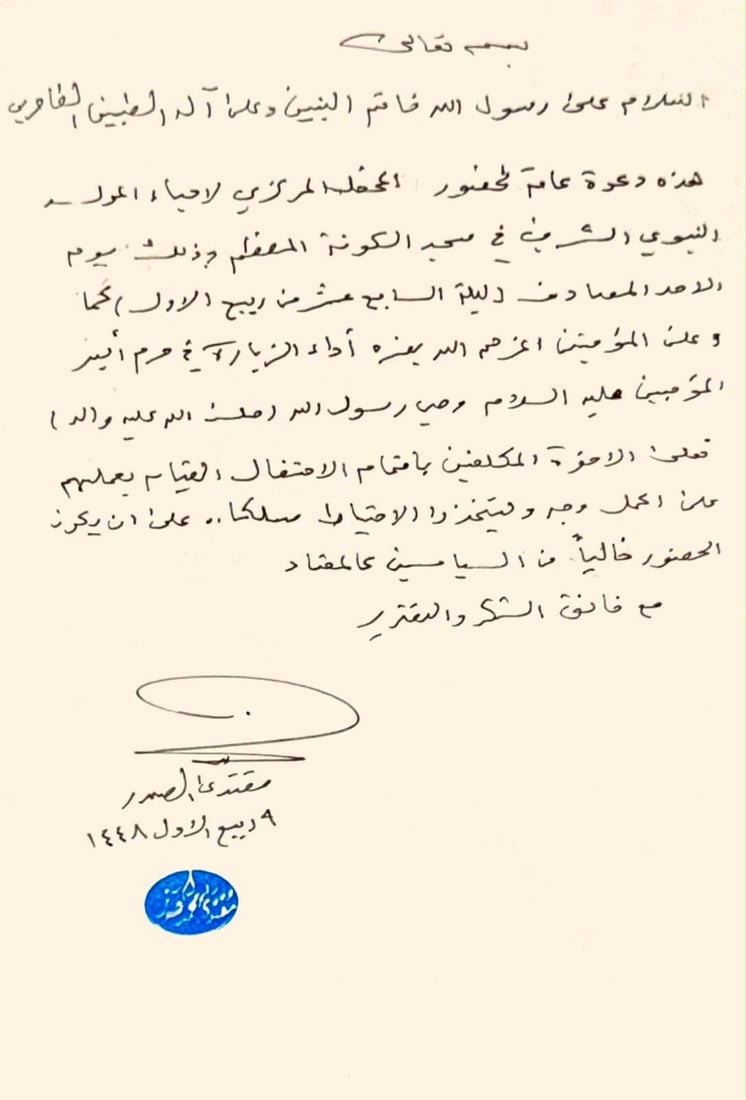 بسمه تعالى
السلام على رسول الله خاتم النبيين وعلى آله الطيبين الطاهرين
هذه دعوة عامة لحضور المحفل المركزي لاحياء المولد
النبوي الشريف في مسجد الكوفة المعظم وذلك يوم
الاحد المصادف (ليلة السابع عشر من ربيع الاول) كما
وعلى المؤمنين اعزهم الله بعزه أداء الزيارة في حرم أمير
المؤمنين عليه السلام وصي رسول الله (صلى الله عليه واله)
فعلى الاخوة المكلفين باتمام الاحتفال القيام بعملهم
على اكمل وجه وليتخذوا الاحتياط مسلكا.. على ان يكون
الحضور خالياً من السياسيين كالمعتاد
مع فائق الشكر والتقدير
مقتدى الصدر
٩ ربيع الاول ١٤٤٨